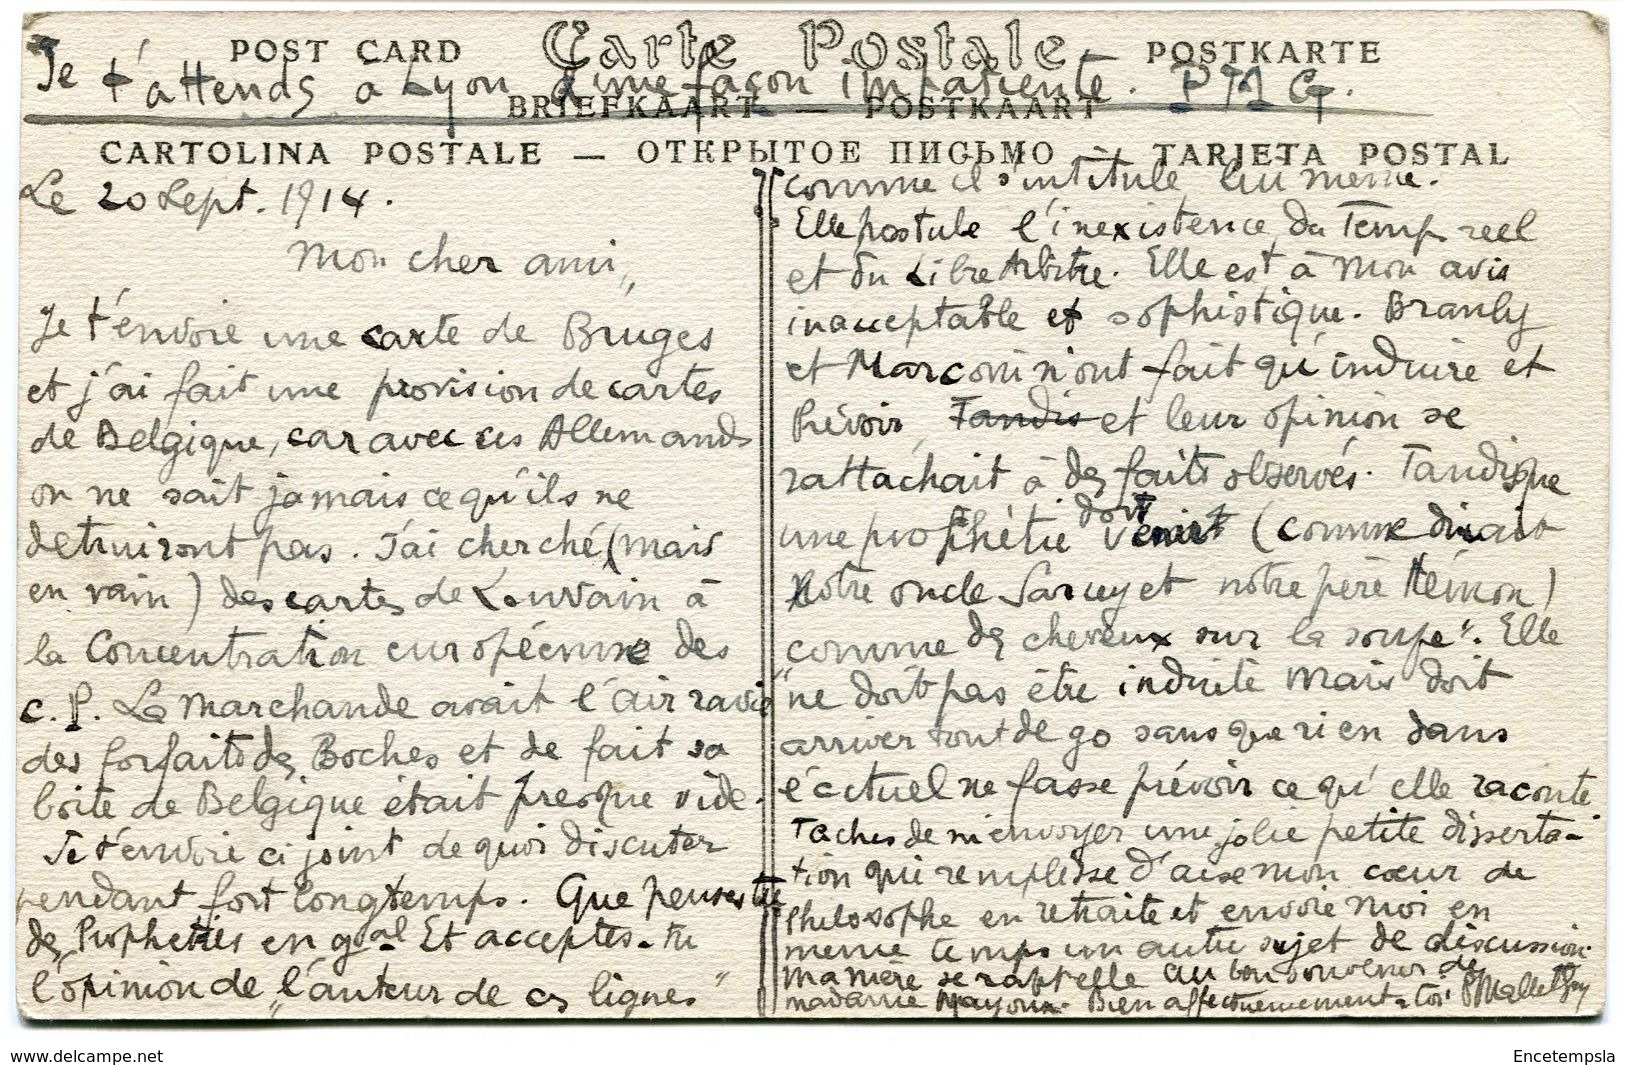 POST CARD Carte Postale POSTKARTE
Je t'attends a Lyon d'une façon impatiente. PMG.
BRIEFKAART — POSTKAART
CARTOLINA POSTALE — ОТКРЫТОЕ ПИСЬМО — TARJETA POSTAL
Le 20 Sept. 1914.
Mon cher ami,
Je t'envoie une carte de Bruges
et j'ai fait une provision de cartes
de Belgique, car avec ces Allemands
on ne sait jamais ce qu'ils ne
detruiront pas. J'ai cherché (mais
en vain) des cartes de Louvain à
la Concentration européenne des
c. P. La Marchande avait l'air ravie
des forfaits des Boches et de fait sa
boite de Belgique était presque vide.
Je t'envoie ci joint de quoi discuter
pendant fort longtemps. Que penses tu
des Propheties en gal Et acceptes-tu
l'opinion de "l'auteur de ces lignes"
comme il s'intitule lui meme.
Elle postule l'inexistence du Temps reel
et du Libre Arbitre. Elle est à mon avis
inacceptable et sophistique. Branly
et Marconi n'ont fait qu'induire et
Prévoir, Tandis et leur opinion se
rattachait à des faits observés. Tandis que
une prophétie doit venir (comme dirait
Notre oncle Sarcey et notre père Hémon)
"comme des cheveux sur la soupe". Elle
ne doit pas être induite mais doit
arriver tout de go sans que rien dans
l'actuel ne fasse prévoir ce qu'elle raconte
Taches de m'envoyer une jolie petite disserta-
tion qui remplisse d'aise mon cœur de
Philosophe en retraite et envoie moi en
meme temps un autre sujet de discussion.
Ma mère se rappelle au bon souvenir de
madame Mayoux. Bien affectueusement à toi
delcampe.net Encetempsla